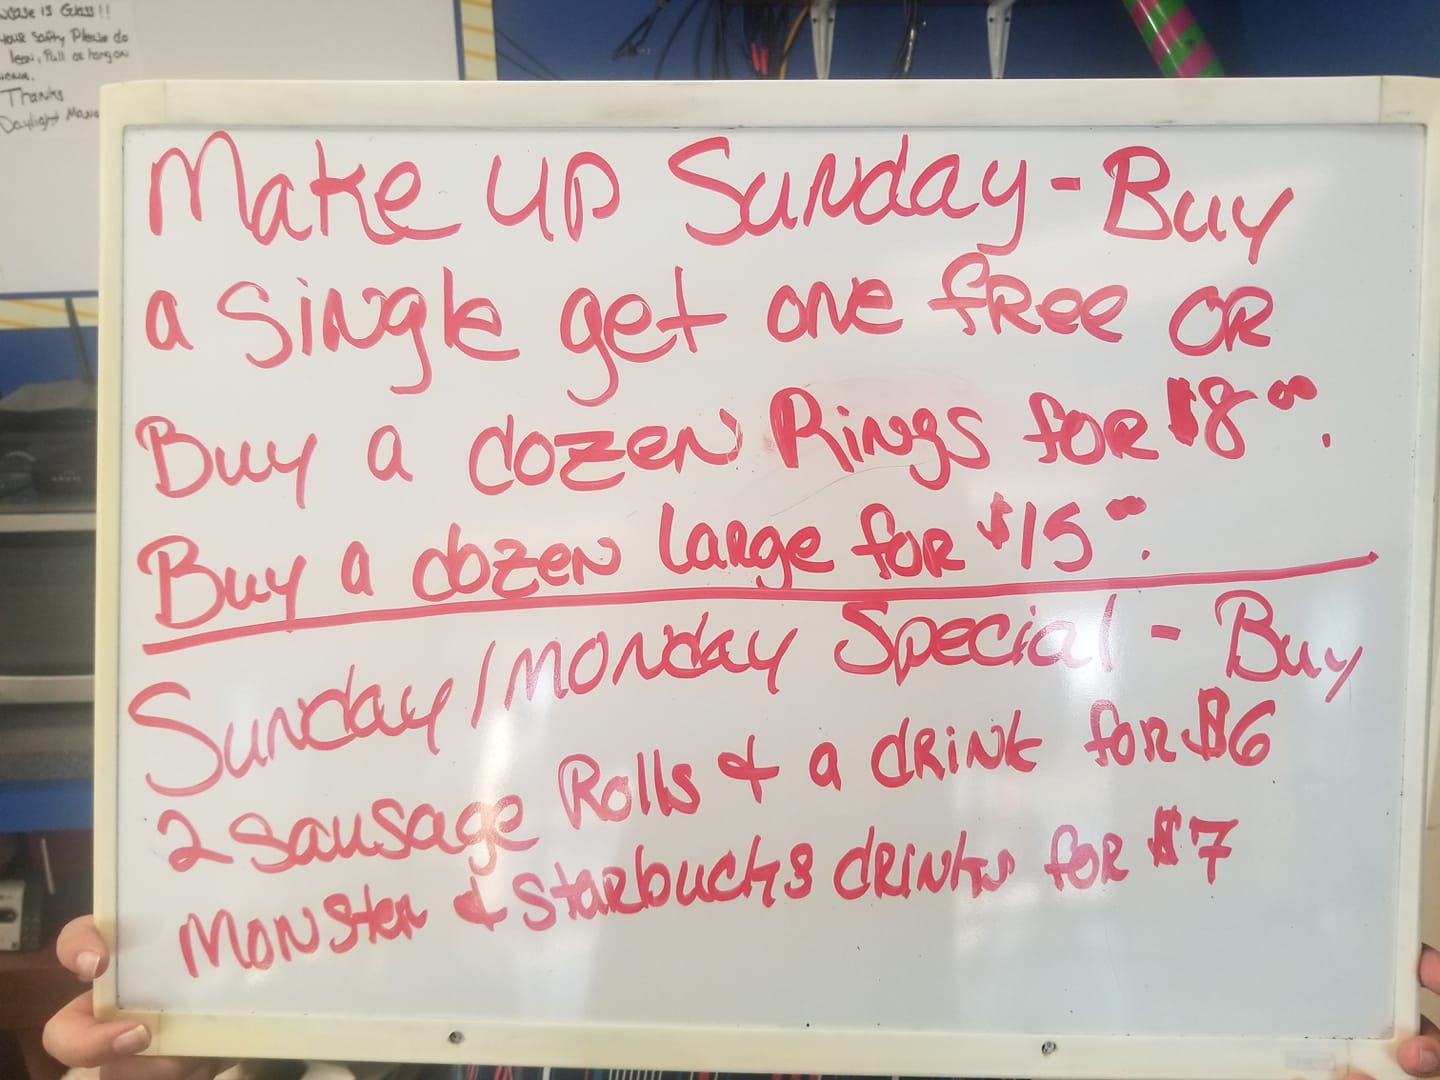 case is Glass!!
your Safty Please do
lean, Pull or hang on
Thanks
Daylight
Make up Sunday - Buy
a single get one free OR
Buy a dozen Rings for $8.00.
Buy a dozen large for $15.00.
Sunday/Monday Special - Buy
2 sausage Rolls & a drink for $6
Monster & Starbucks drinks for $7